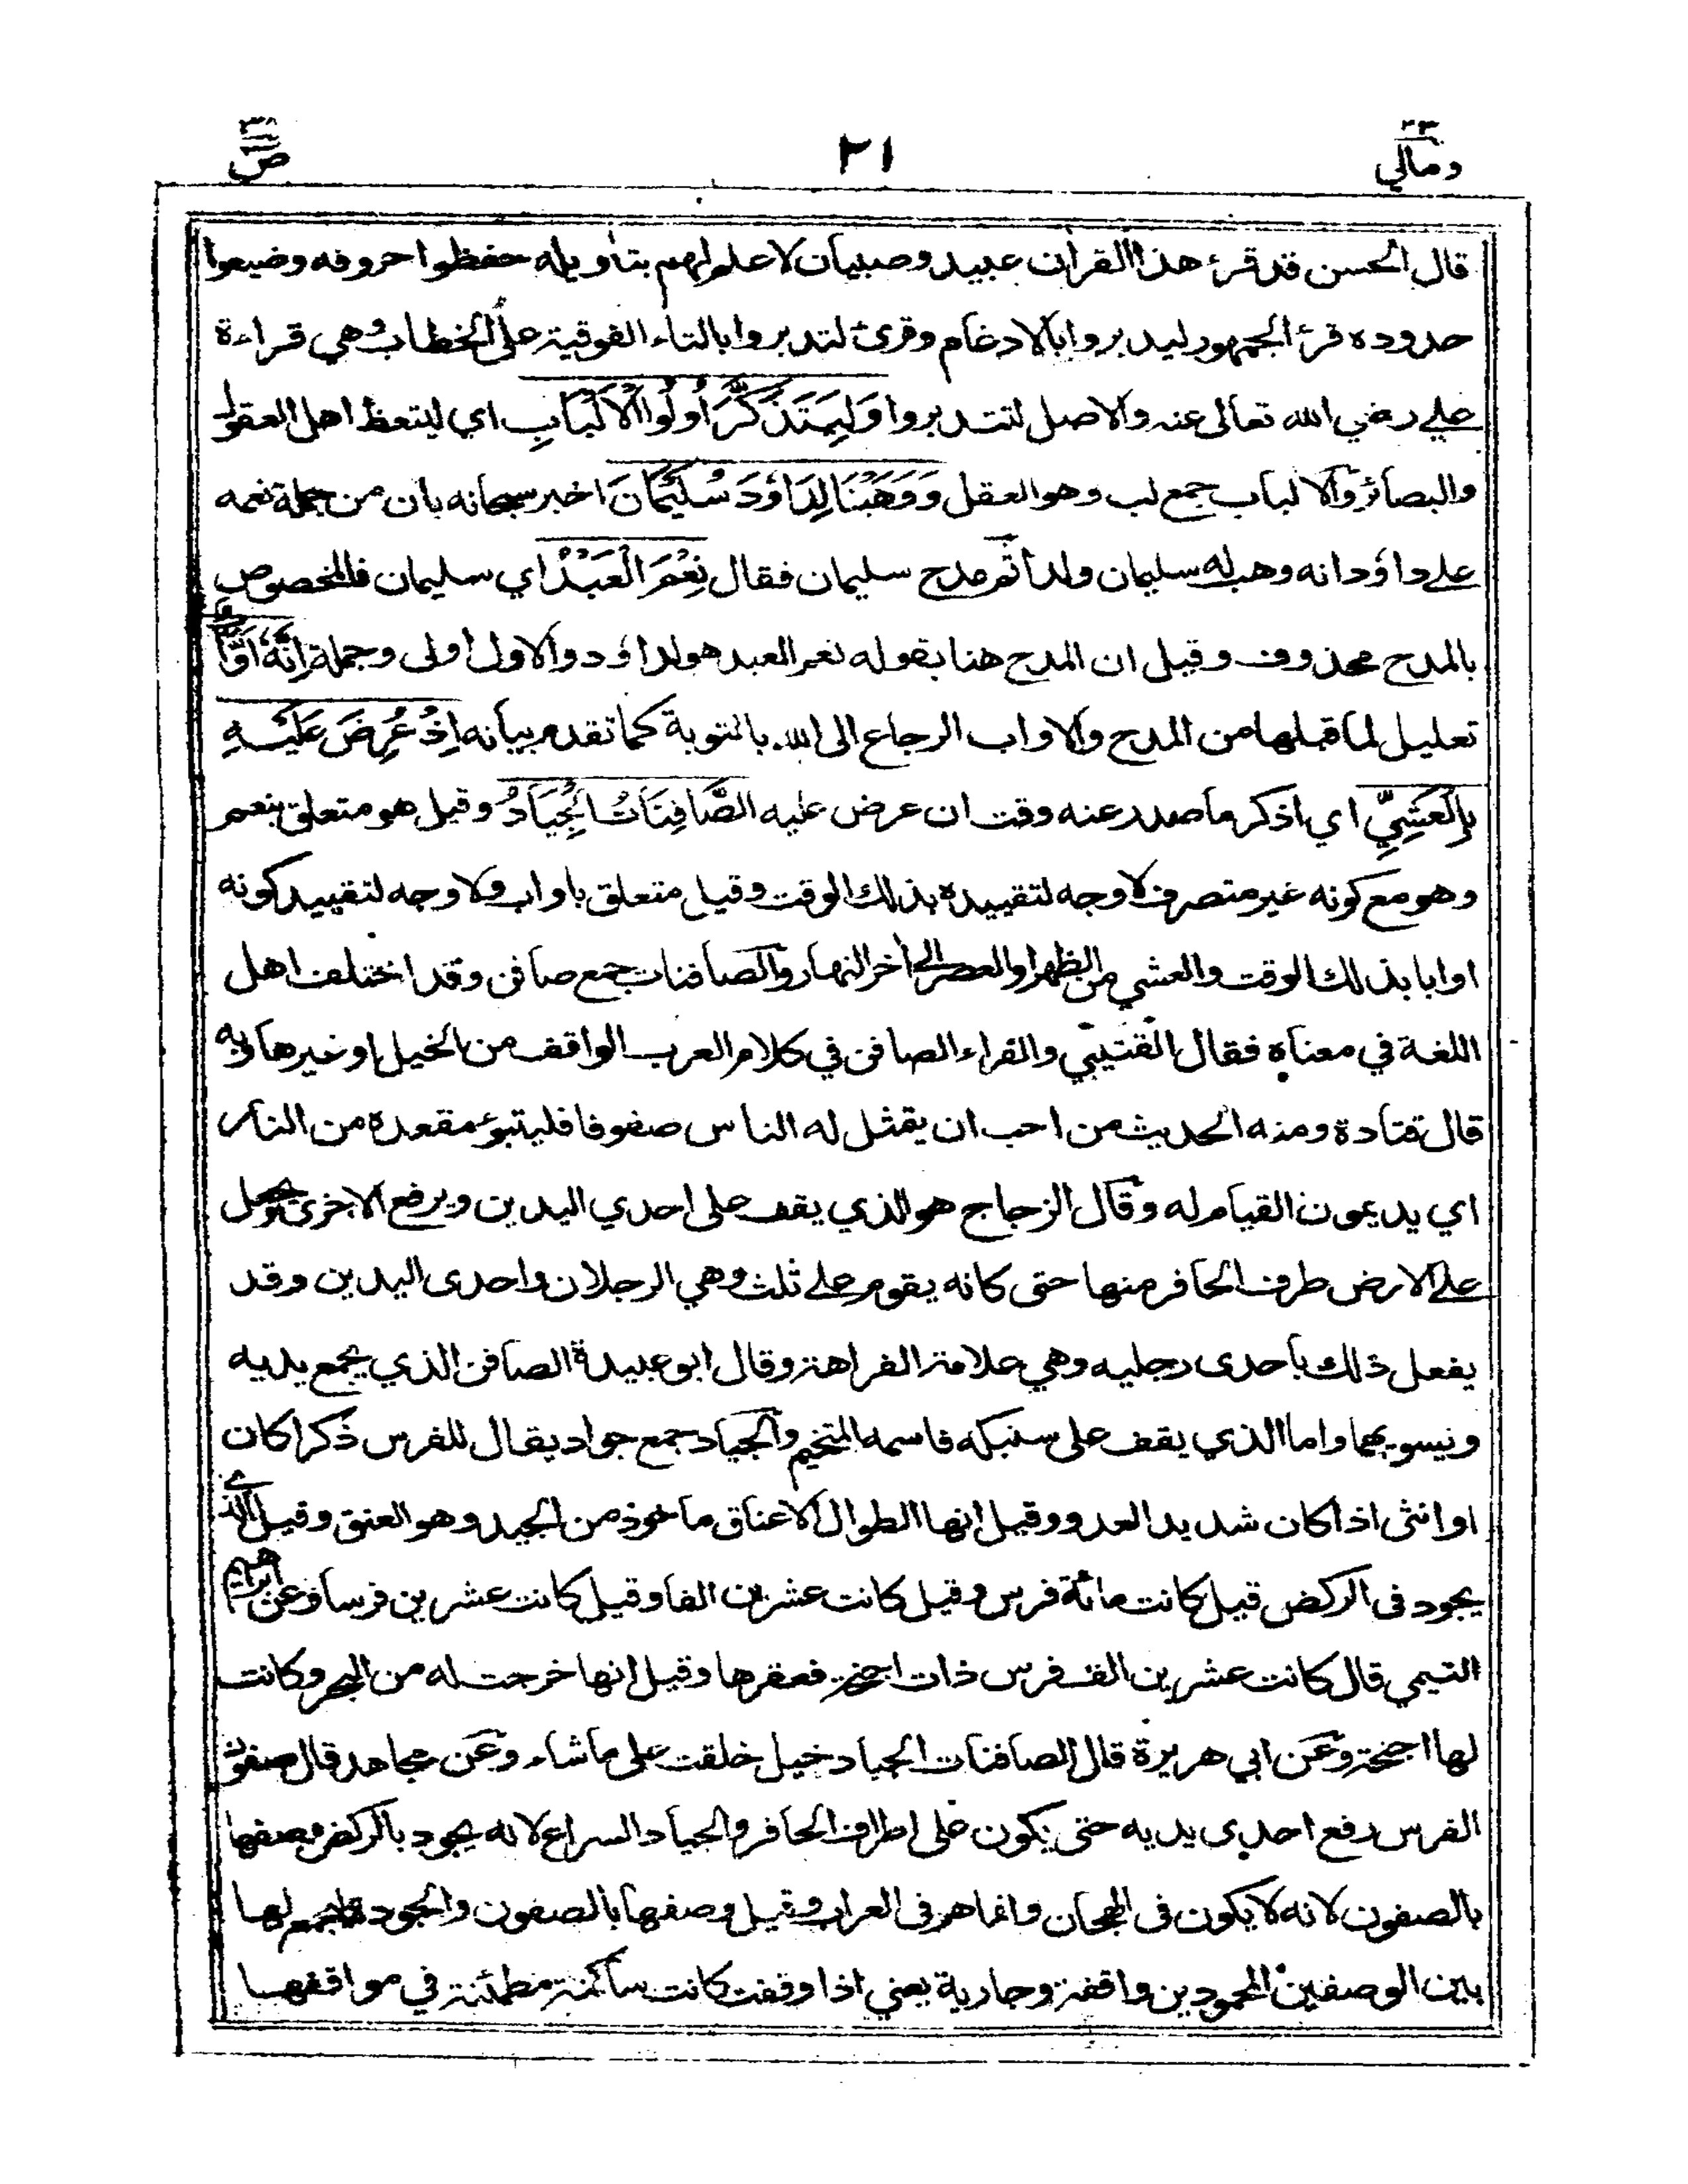 ٢٣ ومالي
٢١
٣٨ ص
قال الحسن قد قرء هذا القران عبيد وصبيان لا علم لهم بتاويله حفظوا حروفه وضيعوا
حدوده قرء الجمهور ليدبروا بالادغام وقرئ لتدبروا بالتاء الفوقية على الخطاب وهي قراءة
علي رضي الله تعالى عنه والاصل لتتدبروا وَلِيَتَذَكَّرَ اُولُوا الْاَلْبَابِ اي ليتعظ اهل العقول
والبصائر والالباب جمع لب وهو العقل وَوَهَبْنَا لِدَاوٗدَ سُلَيْمٰنَ اخبر سبحانه بان من جملة نعمه
على داؤد انه وهب له سليمان ولدا ثم مدح سليمان فقال نِعْمَ الْعَبْدُ اي سليمان فالمخصوص
بالمدح محذوف وقيل ان المدح هنا بقوله نعم العبد هو لداؤد والاول اولى وجملة اِنَّهٗ اَوَّابٌ
تعليل لما قبلها من المدح والاواب الرجاع الى الله بالتوبة كما تقدم بيانه اِذْ عُرِضَ عَلَيْهِ
بِالْعَشِيِّ اي اذكر ما صدر عنه وقت ان عرض عليه الصَّافِنَاتُ الْجِيَادُ وقيل هو متعلق بنعم
وهو مع كونه غير متصرف لا وجه لتقييده بذلك الوقت وقيل متعلق باواب ولا وجه لتقييد كونه
اوابا بذلك الوقت والعشي من الظهر او العصر الى اخر النهار والصافنات جمع صافن وقد اختلف اهل
اللغة في معناه فقال القتيبي والفراء الصافن في كلام العرب الواقف من الخيل او غيرها وبه
قال قتادة ومنه الحديث من احب ان يتمثل له الناس صفوفا فليتبوء مقعده من النار
اي يديمون القيام له وقال الزجاج هو الذي يقف على احدي اليدين ويرفع الاخرى ويجعل
على الارض طرف الحافر منها حتى كانه يقوم على ثلث وهي الرجلان واحدى اليدين وقد
يفعل ذلك باحدى رجليه وهي علامة الفراهة وقال ابو عبيدة الصافن الذي يجمع يديه
ويسويهما واما الذي يقف على سنبكه فاسمه المتخيم والجياد جمع جواد يقال للفرس ذكرا كان
او انثى اذا كان شديد العدو وقيل انها الطوال الاعناق ماخوذ من الجيد وهو العنق وقيل الذي
يجود فى الركض قيل كانت مائة فرس وقيل كانت عشرين الفا وقيل كانت عشرين فرسا وعن ابراهيم
التيمي قال كانت عشرين الف فرس ذات اجنحة فعقرها وقيل انها خرجت له من البحر وكانت
لها اجنحة وعن ابي هريرة قال الصافنات الجياد خيل خلقت على ما شاء وعن مجاهد قال صفون
الفرس رفع احدى يديه حتى يكون على اطراف الحافر والجياد السراع لانه يجود بالركض وصفها
بالصفون لانه لا يكون فى الهجان وانما هو فى العراب وقيل وصفها بالصفون والجودة ليجمع لها
بين الوصفين المحمودين واقفة وجارية يعني اذا وقفت كانت ساكنة مطمئنة في مواقفها